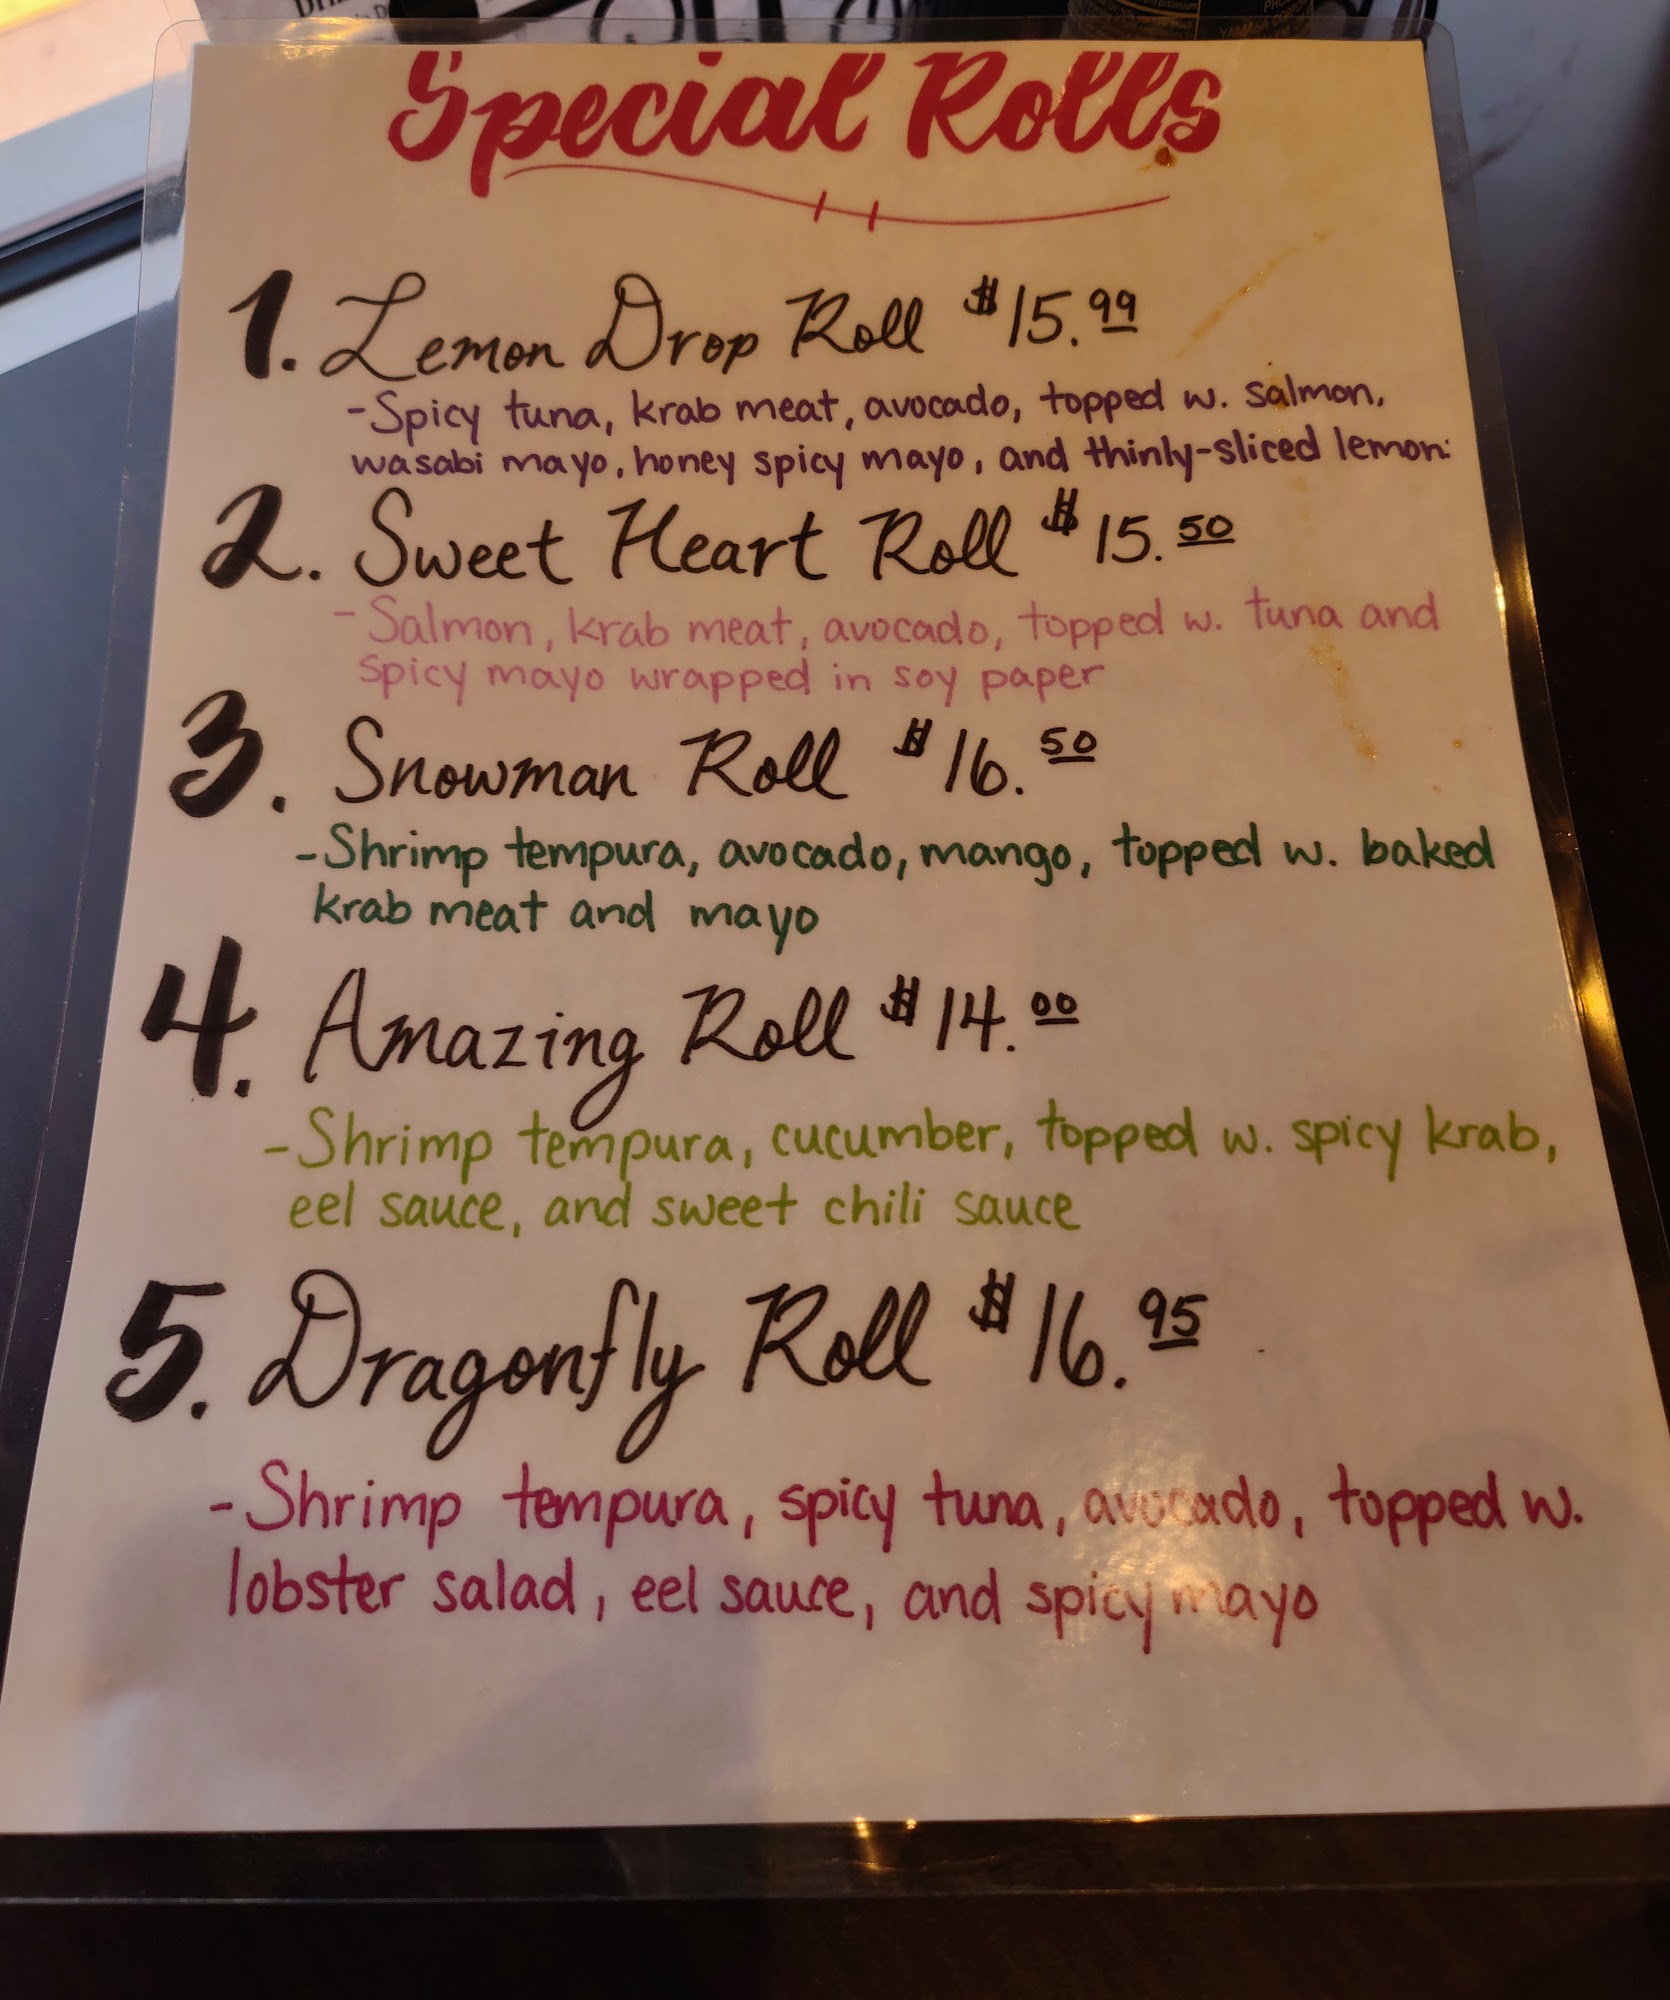 Special Rolls
1. Lemon Drop Roll $15.99
-Spicy tuna, krab meat, avocado, topped w. salmon,
wasabi mayo, honey spicy mayo, and thinly-sliced lemon.
2. Sweet Heart Roll $15.50
-Salmon, krab meat, avocado, topped w. tuna and
spicy mayo wrapped in soy paper
3. Snowman Roll $16.50
-Shrimp tempura, avocado, mango, topped w. baked
krab meat and mayo
4. Amazing Roll $14.00
-Shrimp tempura, cucumber, topped w. spicy krab,
eel sauce, and sweet chili sauce
5. Dragonfly Roll $16.95
-Shrimp tempura, spicy tuna, avocado, topped w.
lobster salad, eel sauce, and spicy mayo